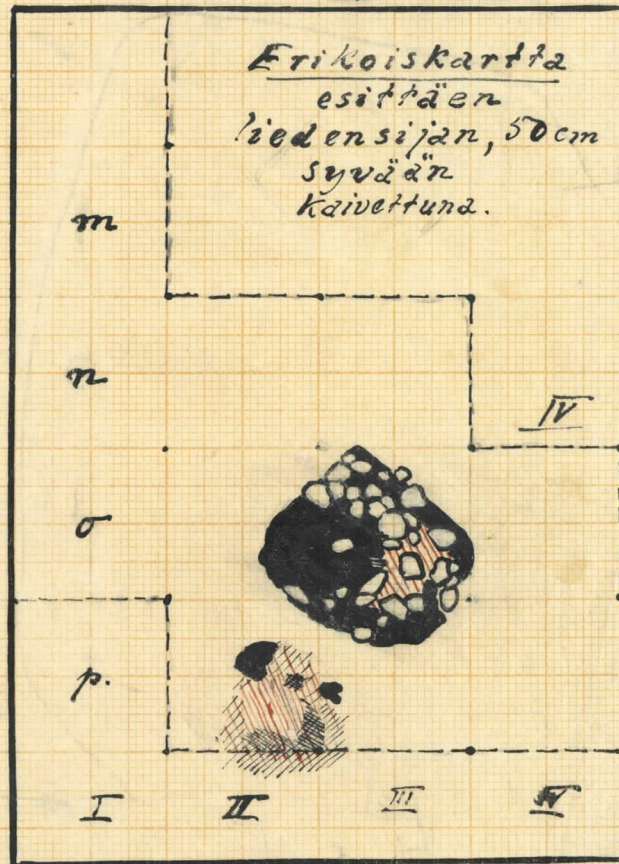 Erikoiskartta
esittäen
liedensijan, 50 cm
syvään
kaivettuna.
m
n
IV
o
p.
I II III IV